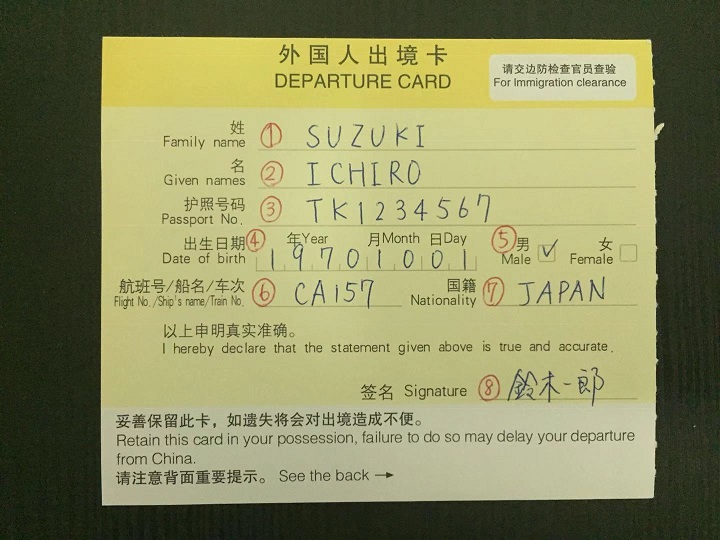 外国人出境卡
DEPARTURE CARD
请交边防检查官员查验
For Immigration clearance
姓
Family name ① SUZUKI
名
Given names ② ICHIRO
护照号码
Passport No. ③ TK1234567
出生日期 ④ 年Year 月Month 日Day
Date of birth 19701001
⑤ 男 女
Male ✓ Female
航班号/船名/车次
Flight No./Ship's name/Train No. ⑥ CA157
国籍
Nationality ⑦ JAPAN
以上申明真实准确。
I hereby declare that the statement given above is true and accurate.
签名 Signature ⑧ 鈴木一郎
妥善保留此卡，如遗失将会对出境造成不便。
Retain this card in your possession, failure to do so may delay your departure
from China.
请注意背面重要提示。 See the back →